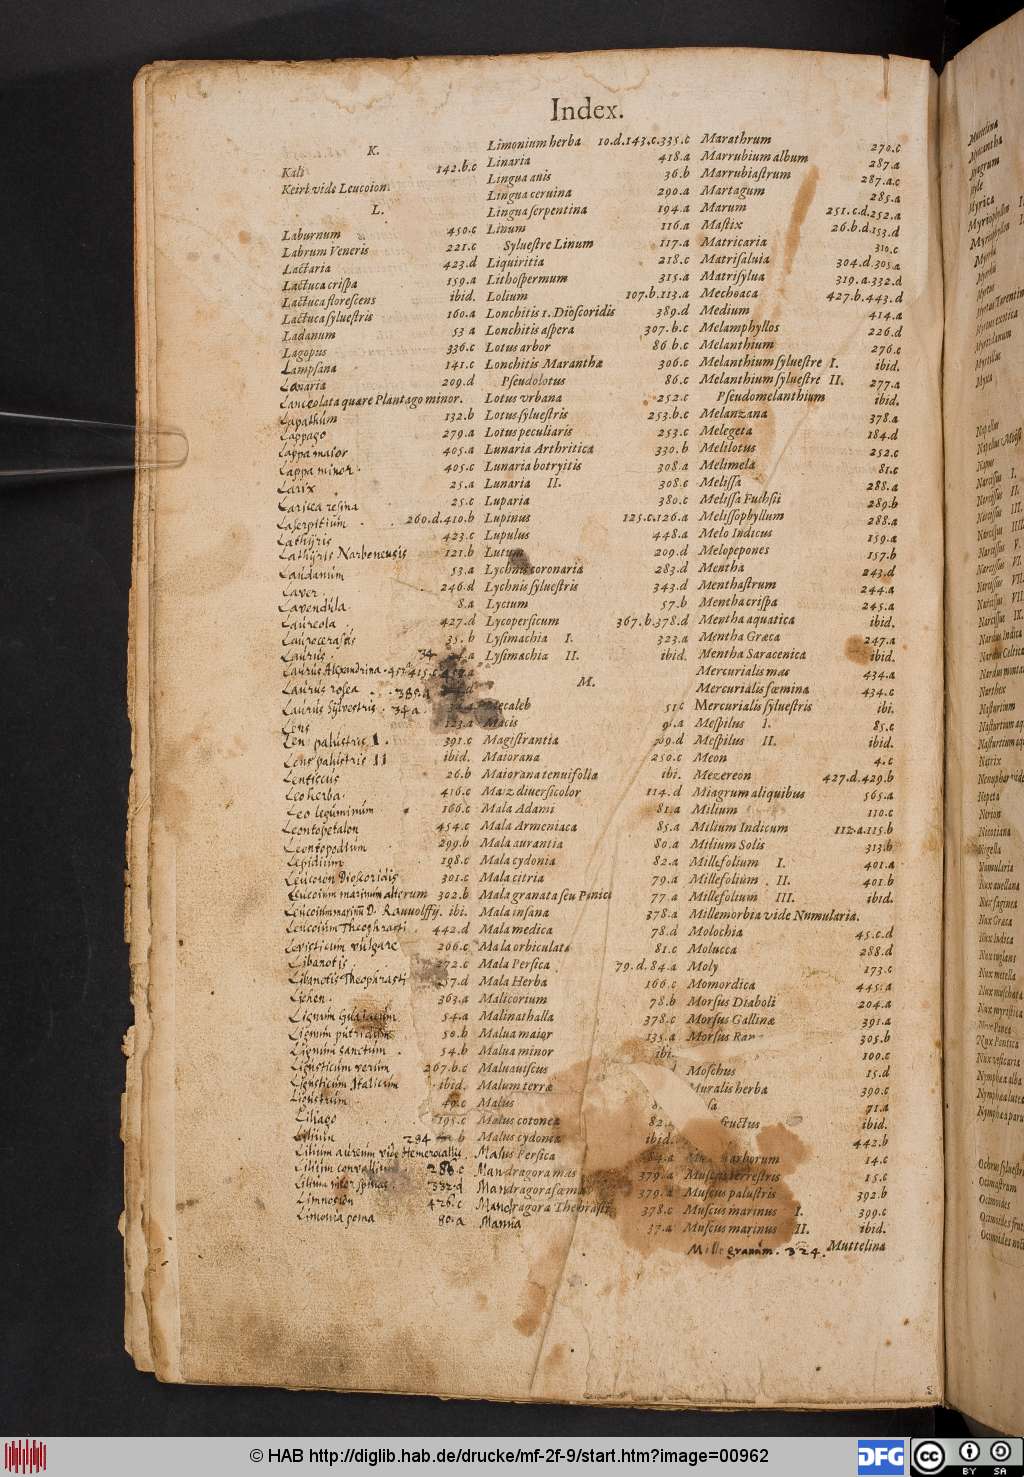 Index.
K.
Kali 142.b.c
Keiri vide Leucoion.
L.
Laburnum 450.c
Labrum Veneris 221.c
Lactaria 423.d
Lactuca crispa 159.a
Lactuca florescens ibid.
Lactuca syluestris 160.a
Ladanum 53.a
Lagopus 336.c
Lampsana 141.c
Lanaria 209.d
Lanceolata quære Plantago minor.
Lapathum 132.b
Lappago 279.a
Lappa maior 405.a
Lappa minor. 405.c
Larix 25.a
Laricea resina 25.c
Laserpitium 260.d.410.b
Lathÿris 423.c
Lathÿris Narbonensis 121.b
Laudanum 53.a
Laver 246.d
Lavendula. 8.a
Laureola. 427.d
Laurocerasus 35.b
Laurus. 34
Laurus Alexandrina.
Laurus rosea 385.a
Laurus Sylvestris. 34.a
Lens 123.a
Lens palustris I. 391.c
Lens palustris II ibid.
Lentiscus 26.b
Leo herba. 416.c
Leo leguminum 166.c
Leontopetalon 454.c
Leontopodium 299.b
Lepidium 198.c
Leucoion Dioscoridis 301.c
Leucoium marinum alterum 302.b
Leucoium marinũ D. Rauuolffy. ibi.
Leucoium Theophrasti 442.d
Levisticum vulgare 206.c
Libanotis 272.c
Libanotis Theophrasti 57.d
Lichen. 363.a
Lignum Guaiacum 54.a
Lignum putridum 50.b
Lignum sanctum. 54.b
Ligusticum verum 267.b.c
Ligusticum Italicum ibid.
Ligustrum 49.c
Liliago 195.c
Lilium 294 b
Lilium aureum vide Hemerocallis.
Lilium convallium 286.c
Lilium inter spinas 332.d
Limnotion 426.c
Limonia poma 80.a
Limonium herba 10.d.143.c.335.c
Linaria 418.a
Lingua auis 36.b
Lingua ceruina 290.a
Lingua serpentina 194.a
Linum 116.a
Syluestre Linum 117.a
Liquiritia 218.c
Lithospermum 315.a
Lolium 107.b.113.a
Lonchitis 1. Dioscoridis 389.d
Lonchitis aspera 307.b.c
Lotus arbor 86 b.c
Lonchitis Maranthæ 306.c
Pseudolotus 86.c
Lotus vrbana 252.c
Lotus syluestris 253.b.c
Lotus peculiaris 253.c
Lunaria Arthritica 330.b
Lunaria botryitis 308.a
Lunaria II. 308.c
Luparia 380.c
Lupinus 125.c.126.a
Lupulus 448.a
Lutum 209.d
Lychnis coronaria 283.d
Lychnis syluestris 343.d
Lycium 57.b
Lycopersicum 367.b.378.d
Lysimachia I. 323.a
Lysimachia II. ibid.
M.
Mecaleb 51.c
Macis 9 .a
Magistrantia 209.d
Maiorana 250.c
Maiorana tenuifolia ibi.
Maiz diuersicolor 114.d
Mala Adami 81.a
Mala Armeniaca 85.a
Mala aurantia 80.a
Mala cydonia 82.a
Mala citria 79.a
Mala granata seu Punica 77.a
Mala insana 378.a
Mala medica 78.d
Mala orbiculata 81.c
Mala Persica 79.d.84.a
Mala Herba 166.c
Malicorium 78.b
Malinathalla 378.c
Malua maior 135.a
Malua minor ibi.
Maluauiscus
Malum terræ
Malus 8.
Malus cotonea 82.
Malus cydonia ibid.
Malus Persica 84.a
Mandragora mas 379.a
Mandragora fœmina 379.a
Mandragora Theophrasti 378.c
Manna 37.a
Marathrum 270.c
Marrubium album 287.a
Marrubiastrum 287.a.c
Martagum 285.a
Marum 251.c.d.252.a
Mastix 26.b.d.153.d
Matricaria 310.c
Matrisaluia 304.d.305.a
Matrisylua 319.a.332.d
Mechoaca 427.b.443.d
Medium 414.a
Melamphyllos 226.d
Melanthium 276.c
Melanthium syluestre I. ibid.
Melanthium syluestre II. 277.a
Pseudomelanthium ibid.
Melanzana 378.a
Melegeta 184.d
Melilotus 252.c
Melimela 81.c
Melissa 288.a
Melissa Fuchsii 289.b
Melissophyllum 288.a
Melo Indicus 159.a
Melopepones 157.b
Mentha 243.d
Menthastrum 244.a
Mentha crispa 245.a
Mentha aquatica ibid.
Mentha Græca 247.a
Mentha Saracenica ibid.
Mercurialis mas 434.a
Mercurialis fœmina 434.c
Mercurialis syluestris ibi.
Mespilus I. 85.c
Mespilus II. ibid.
Meon 4.c
Mezereon 427.d.429.b
Miagrum aliquibus 565.a
Milium 110.c
Milium Indicum 112.a.115.b
Milium Solis 313.b
Millefolium I. 401.a
Millefolium II. 401.b
Millefolium III. ibid.
Millemorbia vide Numularia.
Molochia 45.c.d
Molucca 288.d
Moly 173.c
Momordica 445.a
Morsus Diaboli 204.a
Morsus Gallinæ 391.a
Morsus Ran 305.b
100.c
Moschus 15.d
Muralis herba 390.c
sa 71.a
fructus ibid.
442.b
arborum 14.c
Muscus terrestris 15.c
Muscus palustris 392.b
Muscus marinus I. 399.c
Muscus marinus II. ibid.
Mille granum. 324.
Muttelina
© HAB http://diglib.hab.de/drucke/mf-2f-9/start.htm?image=00962
DFG
cc
BY SA